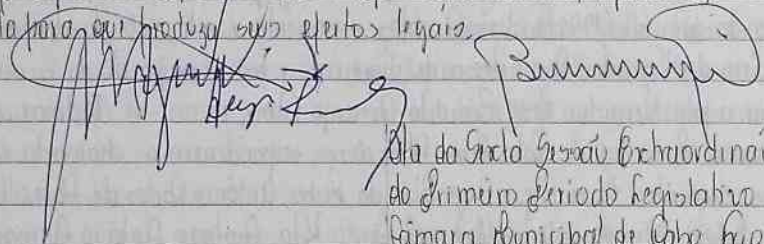 para que produza seus efeitos legais.
Ata da Sexta Sessão Extraordiná
do Primeiro Período Legislativo
Câmara Municipal de Cabo Frio